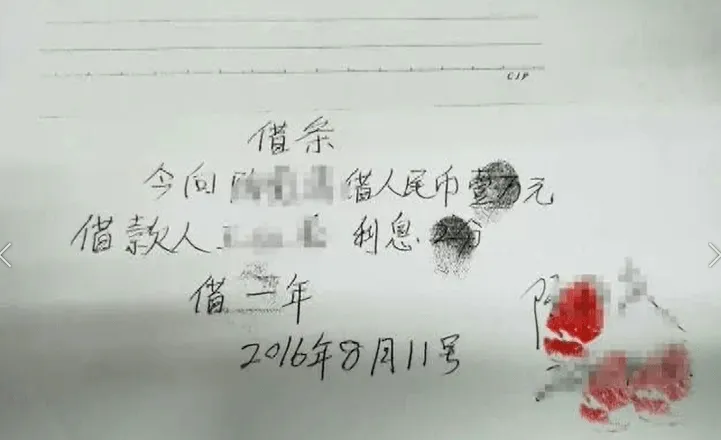 借条
今向 借人民币壹万元
借款人 利息 分
借一年
2016年8月11号